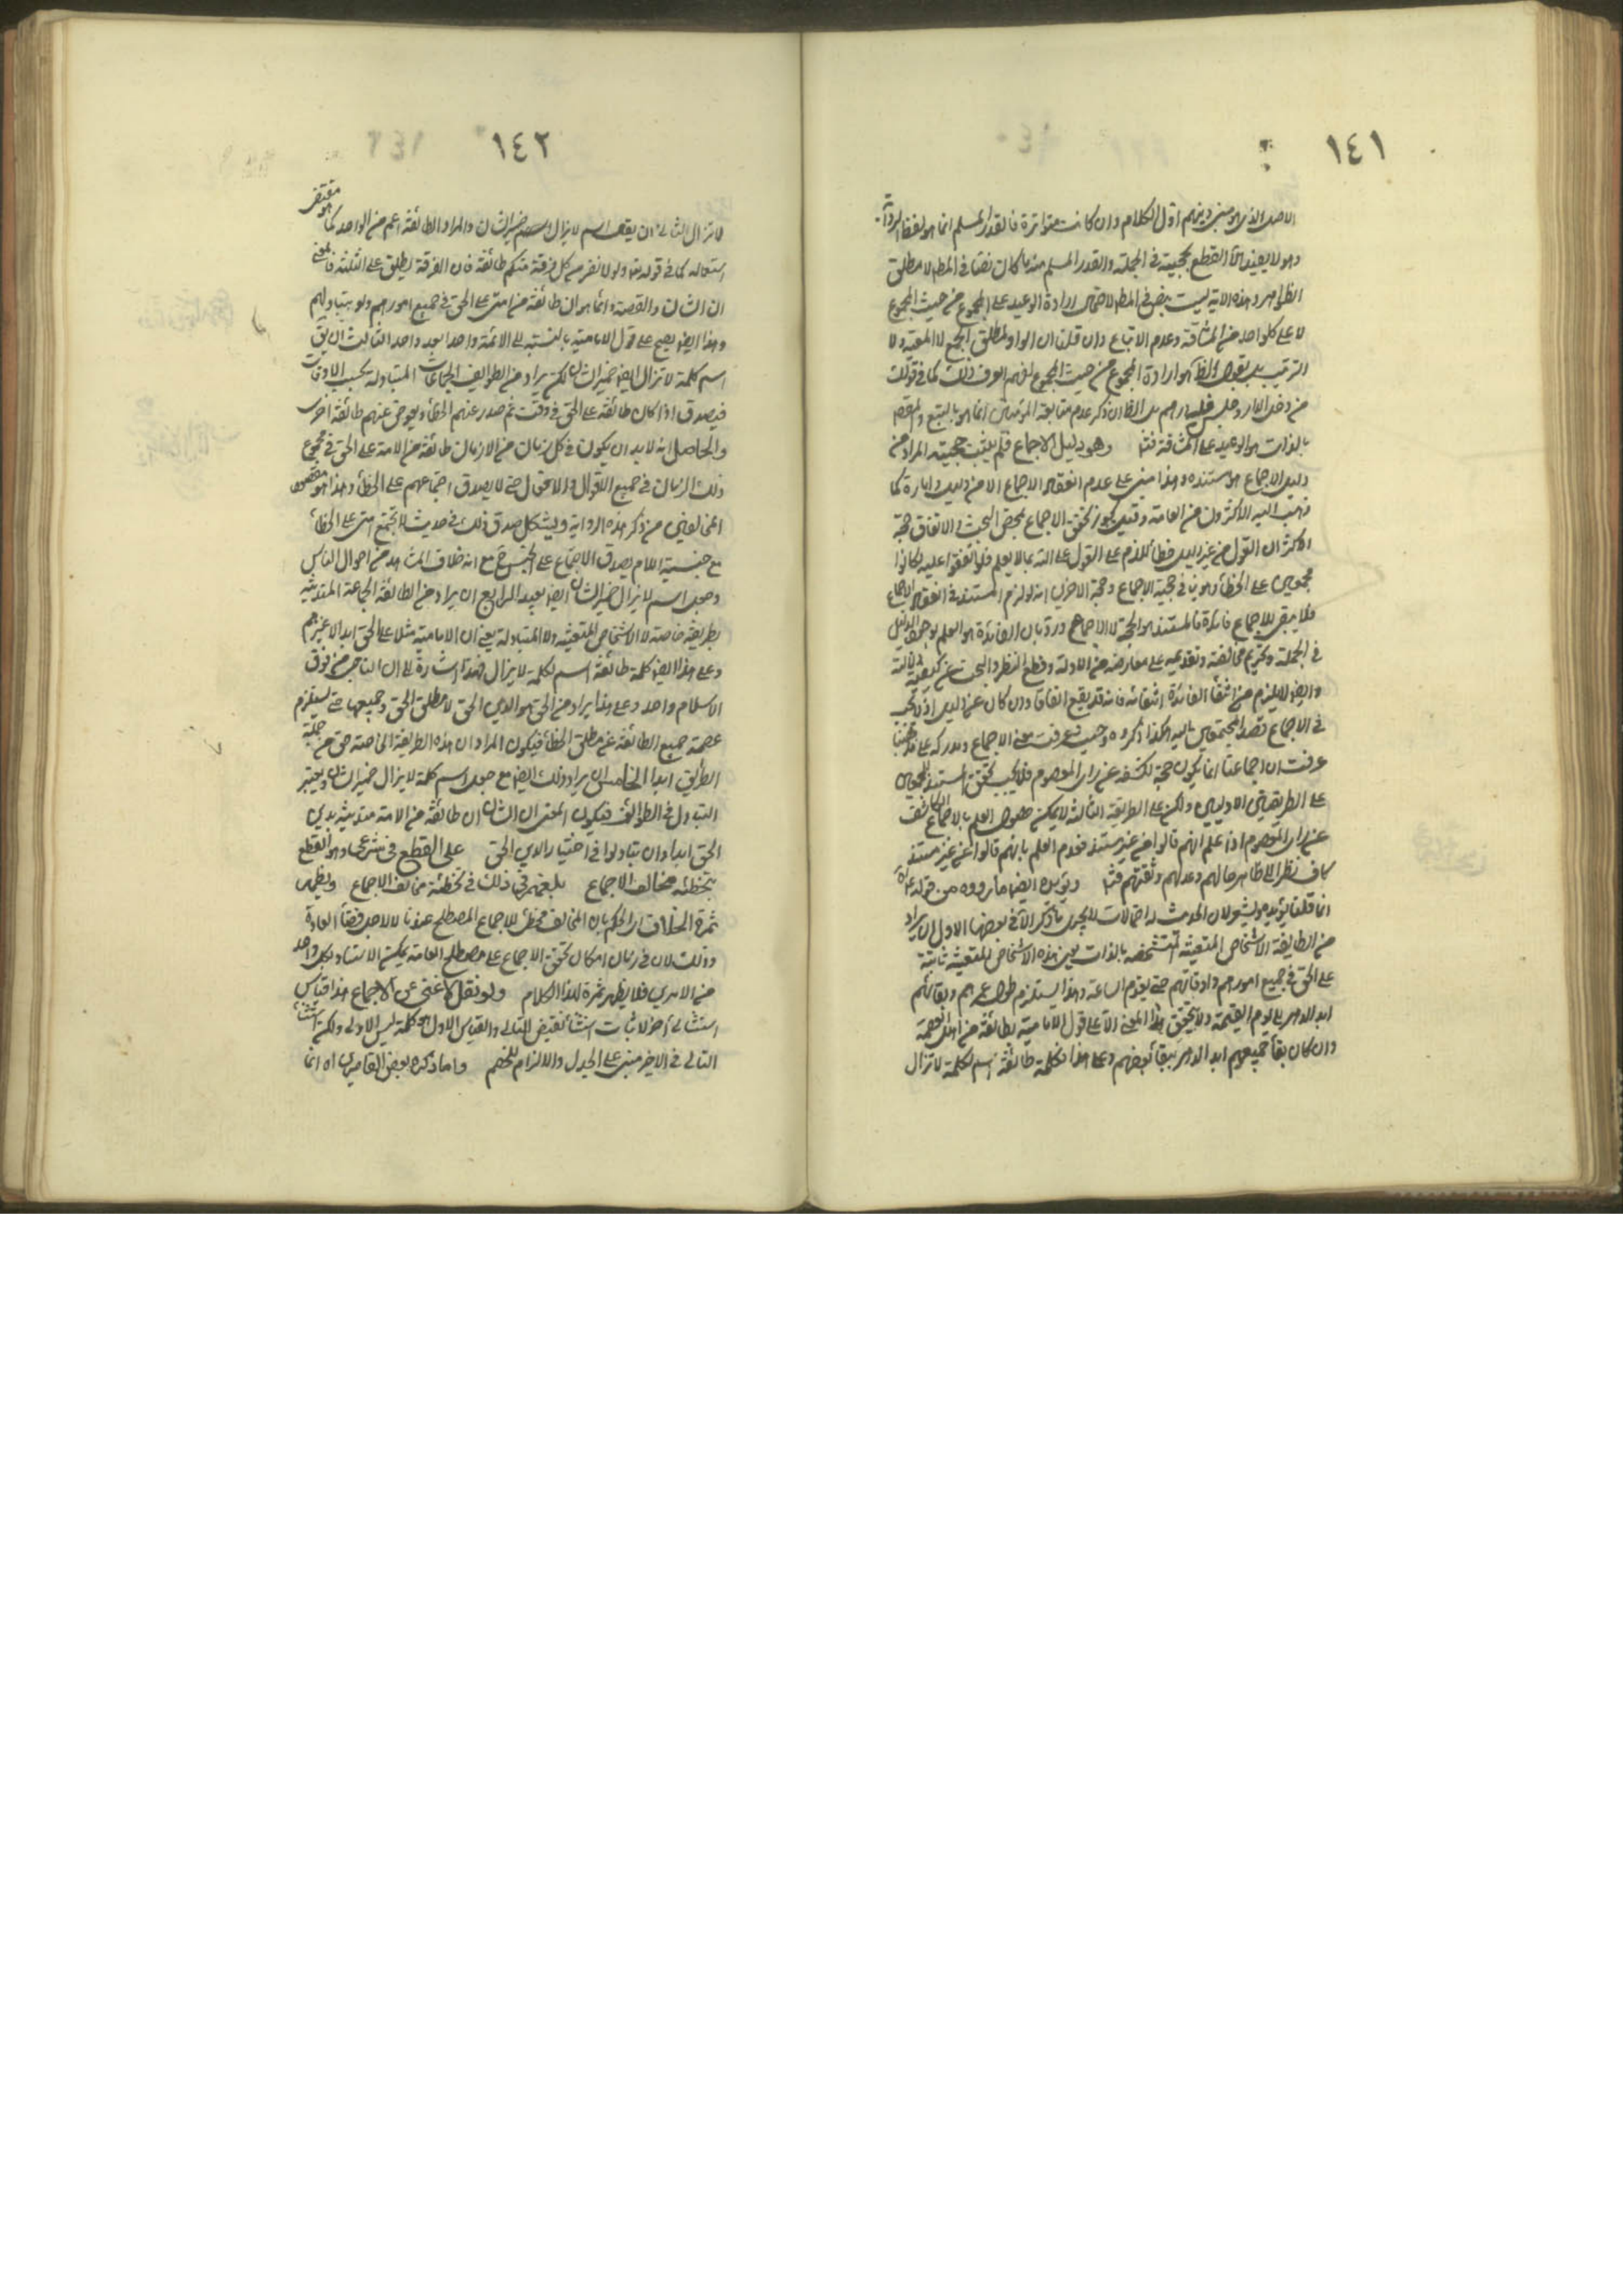 ١٤١
الاصل الذي هو مبنى دينهم اول الكلام وان كانت متواترة فالقدر المسلم انما هو لفظ الرواة
وهو لا يفيد الا القطع بحجيته في الجملة والقدر المسلم منه ما كان نصا في المط لا مطلق
الظواهر وهذه الاية ليست بنص في المط لاحتمال ارادة الوعيد على المجموع من حيث المجموع
لا على كل واحد من المشاقة وعدم الاتباع وان قلنا ان الواو لمطلق الجمع لا المعية ولا
الترتيب بل نقول الظ هو ارادة المجموع من حيث المجموع لفهم العرف ذلك كما في قولك
من دخل الدار وجلس فله درهم بل الظ ان ذكر عدم متابعة المؤمنين انما هو بالتبع والمقصود
بالذات هو الوعيد على المشاقة فتد وهو دليل الاجماع فلم يثبت حجيته المراد من
دليل الاجماع هو مستنده وهذا مبني على عدم انعقاد الاجماع الا من دليل وامارة كما
ذهب اليه الاكثرون من العامة وقيل يجوز تحقق الاجماع بمحض البحث والاتفاق حجة
الاكثر ان القول من غير دليل خطأ للذم على القول على الله بما لا يعلم فلو اتفقوا عليه لكانوا
مجمعين على الخطأ وهو ينافي حجية الاجماع وحجة الاخرين انه لو لزم المستند في انعقاد الاجماع
فلا يبقى للاجماع فائدة فالمستند هو الحجة لا الاجماع ورد بان الفائدة هو العلم بوجود الدليل
في الجملة وتحريم مخالفته وتقديمه على معارضه من الادلة وقطع النظر والبحث عن كيفية دلالته
وايضا لا يلزم من انتفاء الفائدة انتفائه فانه قد يقع اتفاقا وان كان عن دليل اذ لا يجب
في الاجماع قصد المجتمعين اليه هكذا ذكروه وحيث عرفت معنى الاجماع ومدركه على مذهبنا
عرفت ان اجماعنا انما يكون حجة لكشفه عن راى المعصوم فلا يجب تحقق المستند للمجمعين
على الطريقتين الاوليين ولكن على الطريقة الثالثة لا يمكن حصول العلم بالاجماع الكاشف
عن راى المعصوم اذا علم انهم قالوا من غير مستند فعدم العلم بانهم قالوا عن غير مستند
كاف نظرا الى ظاهر حالهم وعدلهم وثقتهم فتد ويؤيده ايضا ما رووه من قوله ص اه
انما قلنا يؤيده ويشير لان الحديث له احتمالات لا يجرى ما ذكر الا في بعضها الاول ان يراد
من الطايفة الاشخاص المتعينة المتشخصة بالذات بمعنى ان هذه الاشخاص المتعينة ثابتة
على الحق في جميع امورهم واوقاتهم حتى يقوم الساعة وهذا يستلزم طول عمرهم وبقائهم
ابد الدهر الى يوم القيمة ولا يتحقق هذا المعنى الا على قول الامامية بطائفة من اهل العصمة
وان كان بقاء جميعهم ابد الدهر ببقاء بعضهم وعلى هذا فكلمة طائفة اسم لكلمة لا تزال
١٤٢
لا تزال الثاني ان يقال اسم لا يزال هو ضمير الشان والمراد الطائفة اعم من الواحد كما هو مقتضى
استعماله كما في قوله تعالى ولولا نفر من كل فرقة منكم طائفة فان الفرقة يطلق على الثلثة فالمعنى
ان الشان والقصة دائما هو ان طائفة من امتى على الحق في جميع امورهم ولو بتبادلهم
وهذا ايضا يصح على قول الامامية بالنسبة الى الائمة واحدا بعد واحد الثالث ان يبقى
اسم كلمة لا تزال ايضا ضمير الشان لكن يراد من الطوايف الجماعات المتبادلة بحسب الاوقات
فيصدق اذا كان طائفة على الحق في وقت ثم صدر عنهم الخطأ وبعوض عنهم طائفة اخرى
والحاصل انه لا بد ان يكون في كل زمان من الازمان طائفة من الامة على الحق في مجموع
ذلك الزمان في جميع الاقوال والافعال حتى لا يصدق اجتماعهم على الخطأ وهذا هو مقصود
المخالفين من ذكر هذه الرواية ويشكل صدق ذلك في حديث لا تجتمع امتى على الخطأ
مع جنسية اللام يصدق الاجتماع على الجنس ح مع انه خلاف المشاهد من احوال الناس
وجعل اسم لا يزال ضمير الشان ايضا بعيد الرابع ان يراد من الطائفة الجماعة المتدينة
بطريقة خاصة لا الاشخاص المتعينة ولا المتبادلة يعني ان الامامية مثلا على الحق ابدا لا غيرهم
وعلى هذا ايضا كلمة طائفة اسم لكلمة لا يزال فهذا اشارة الى ان الناجى من فرق
الاسلام واحد وعلى هذا يراد من الحق هو الدين الحق لا مطلق الحق وجميعها حتى يستلزم
عصمة جميع الطائفة عن مطلق الخطأ فيكون المراد ان هذه الطريقة الخاصة حق من جملة
الطرايق ابدا الخامس ان يراد ذلك ايضا مع جعل اسم كلمة لا يزال ضمير الشان ويعتبر
التبادل في الطوائف فيكون المعنى ان الشان ان طائفة من الامة متدينة بدين
الحق ابدا وان تبادلوا في اختيار الدين الحق على القطع في شرعى وهو القطع
بتخطئة مخالف الاجماع بلغهم في ذلك في تخطئة مخالف الاجماع ويظهر
ثمرة الخلاف ان الحكم بان المخالف مخطئ للاجماع المصطلح عندنا لا لاجل قضاء العادة
وذلك لان في زمان امكان تحقق الاجماع على مصطلح العامة يمكن الاستناد بكل واحد
من الامرين فلا يظهر ثمرة لهذا الكلام ولو نقل لاغنى عن الاجماع هذا قياس
استثنائى اخذ لاثبات استثناء نقيض التالى والقياس الاول هو كلمة ليس الاولى ولكن استثناء
التالى في الاخر مبنى على الجدل والالزام للخصم واما ما ذكره بعض القاصرين اه انما